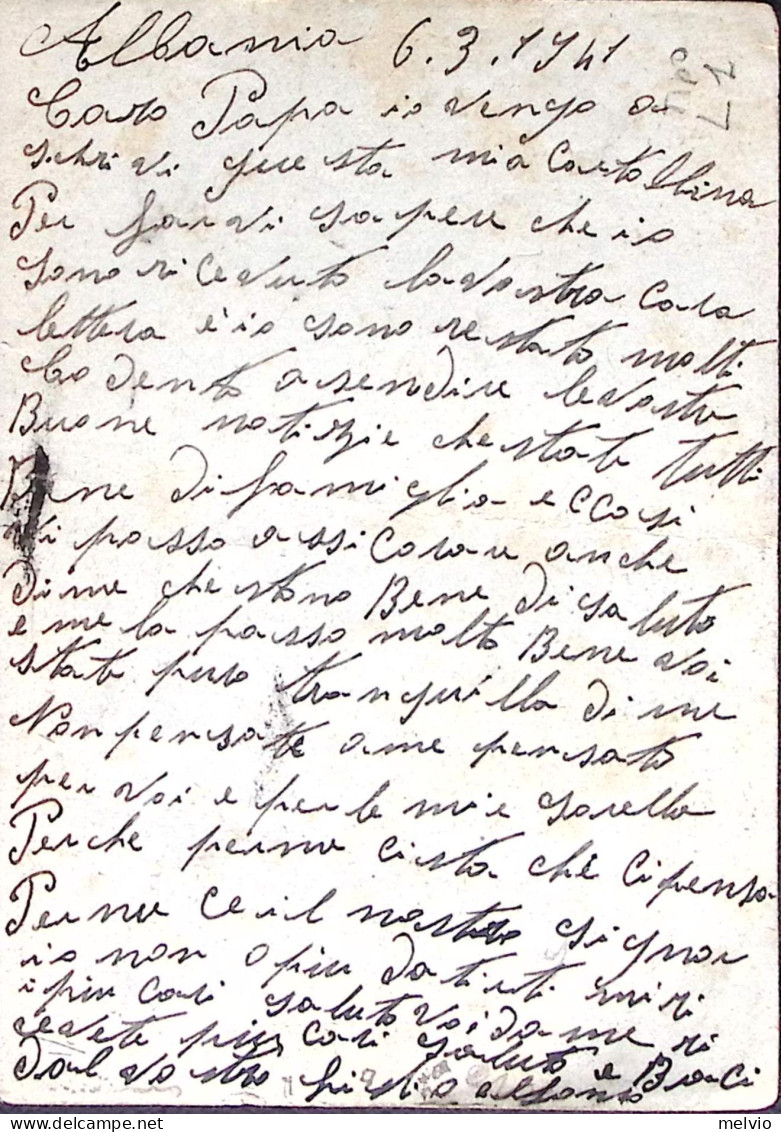 Albania 6.3.1941
Caro Papa io vengo a
schrivi questa mia Cartollina
Per farvi sapere che io
sono riceuto la vostra cara
lettera e io sono restato molti
Codento a sendire le vostre
Buone notizie che state tutti
Bene di famiglia e ccosi
vi posso assicorare anche
di me che stono Bene di saluto
e me la passo molto Bene voi
state puro tranquillo di me
Non pensate a me pensato
per voi e per le mie sorella
Perche perme cista che ci pensa
Per me ce il nostro signor
io non o piu da tirti mi ri
i piu cari saluto voi da me ri
cevete piu cari saluto e Baci
dal vostro figlio alfonso
melvio